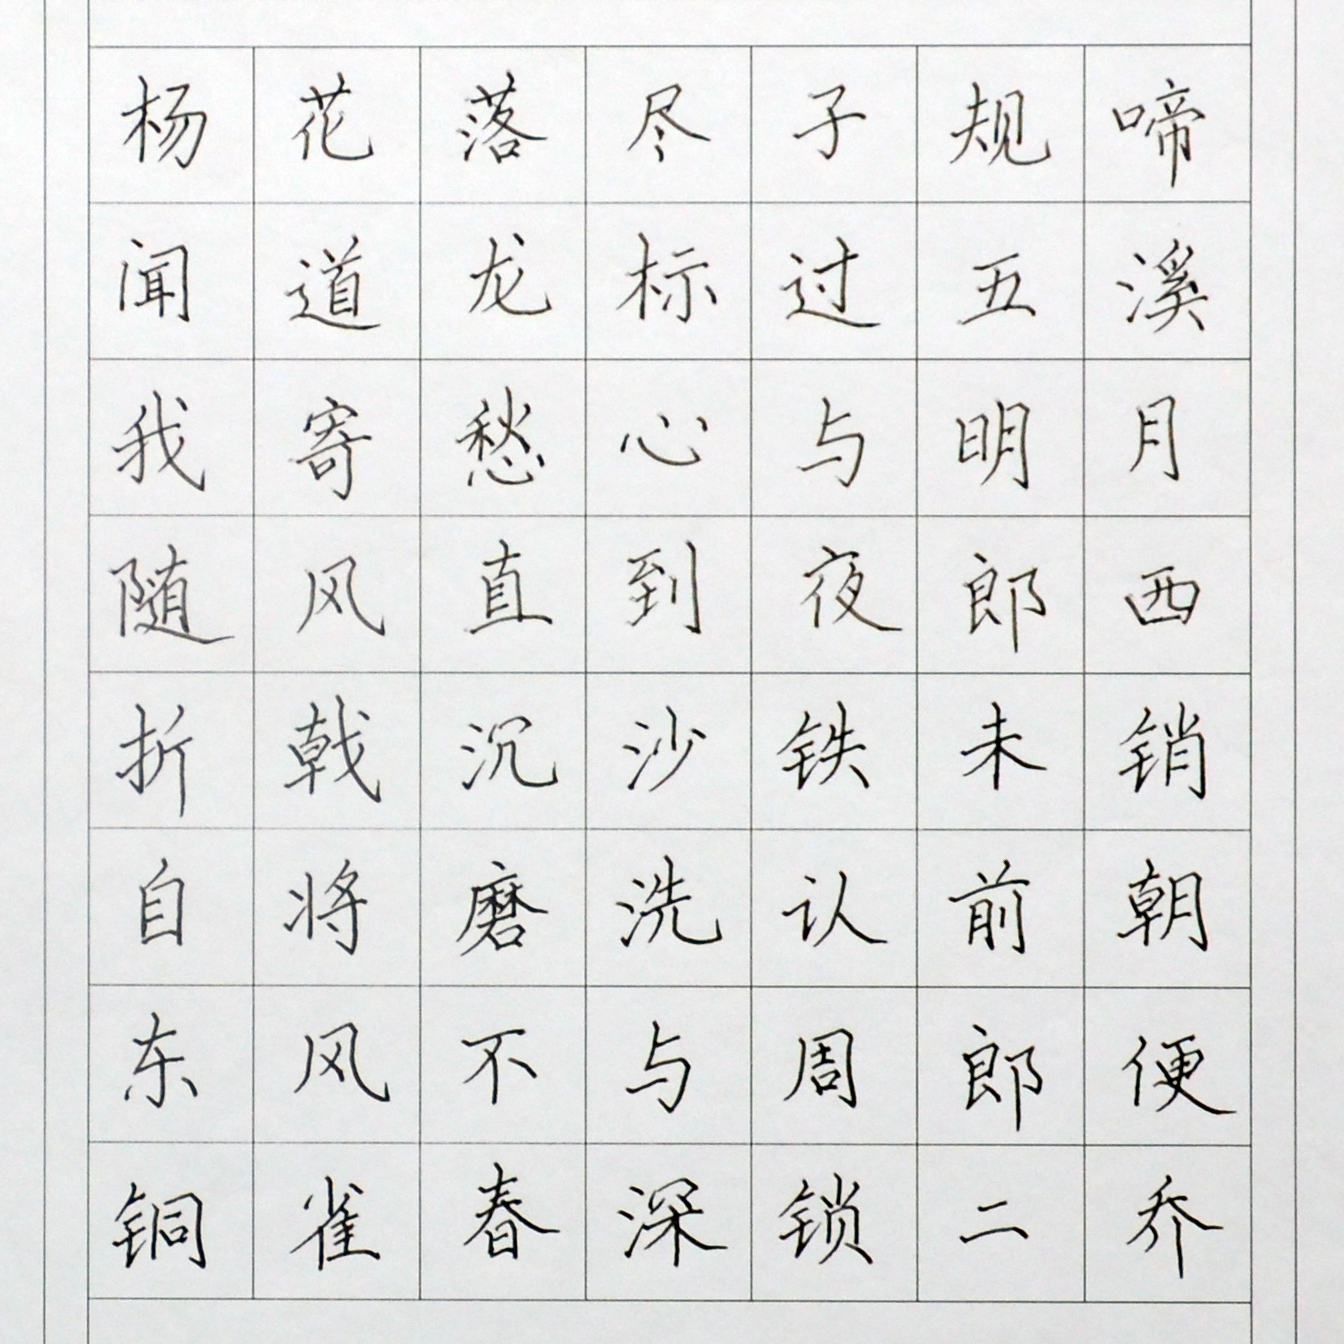 杨花落尽子规啼
闻道龙标过五溪
我寄愁心与明月
随风直到夜郎西
折戟沉沙铁未销
自将磨洗认前朝
东风不与周郎便
铜雀春深锁二乔